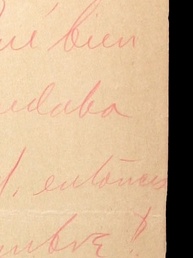 qué bien
edaba
d, entonces
umbre!